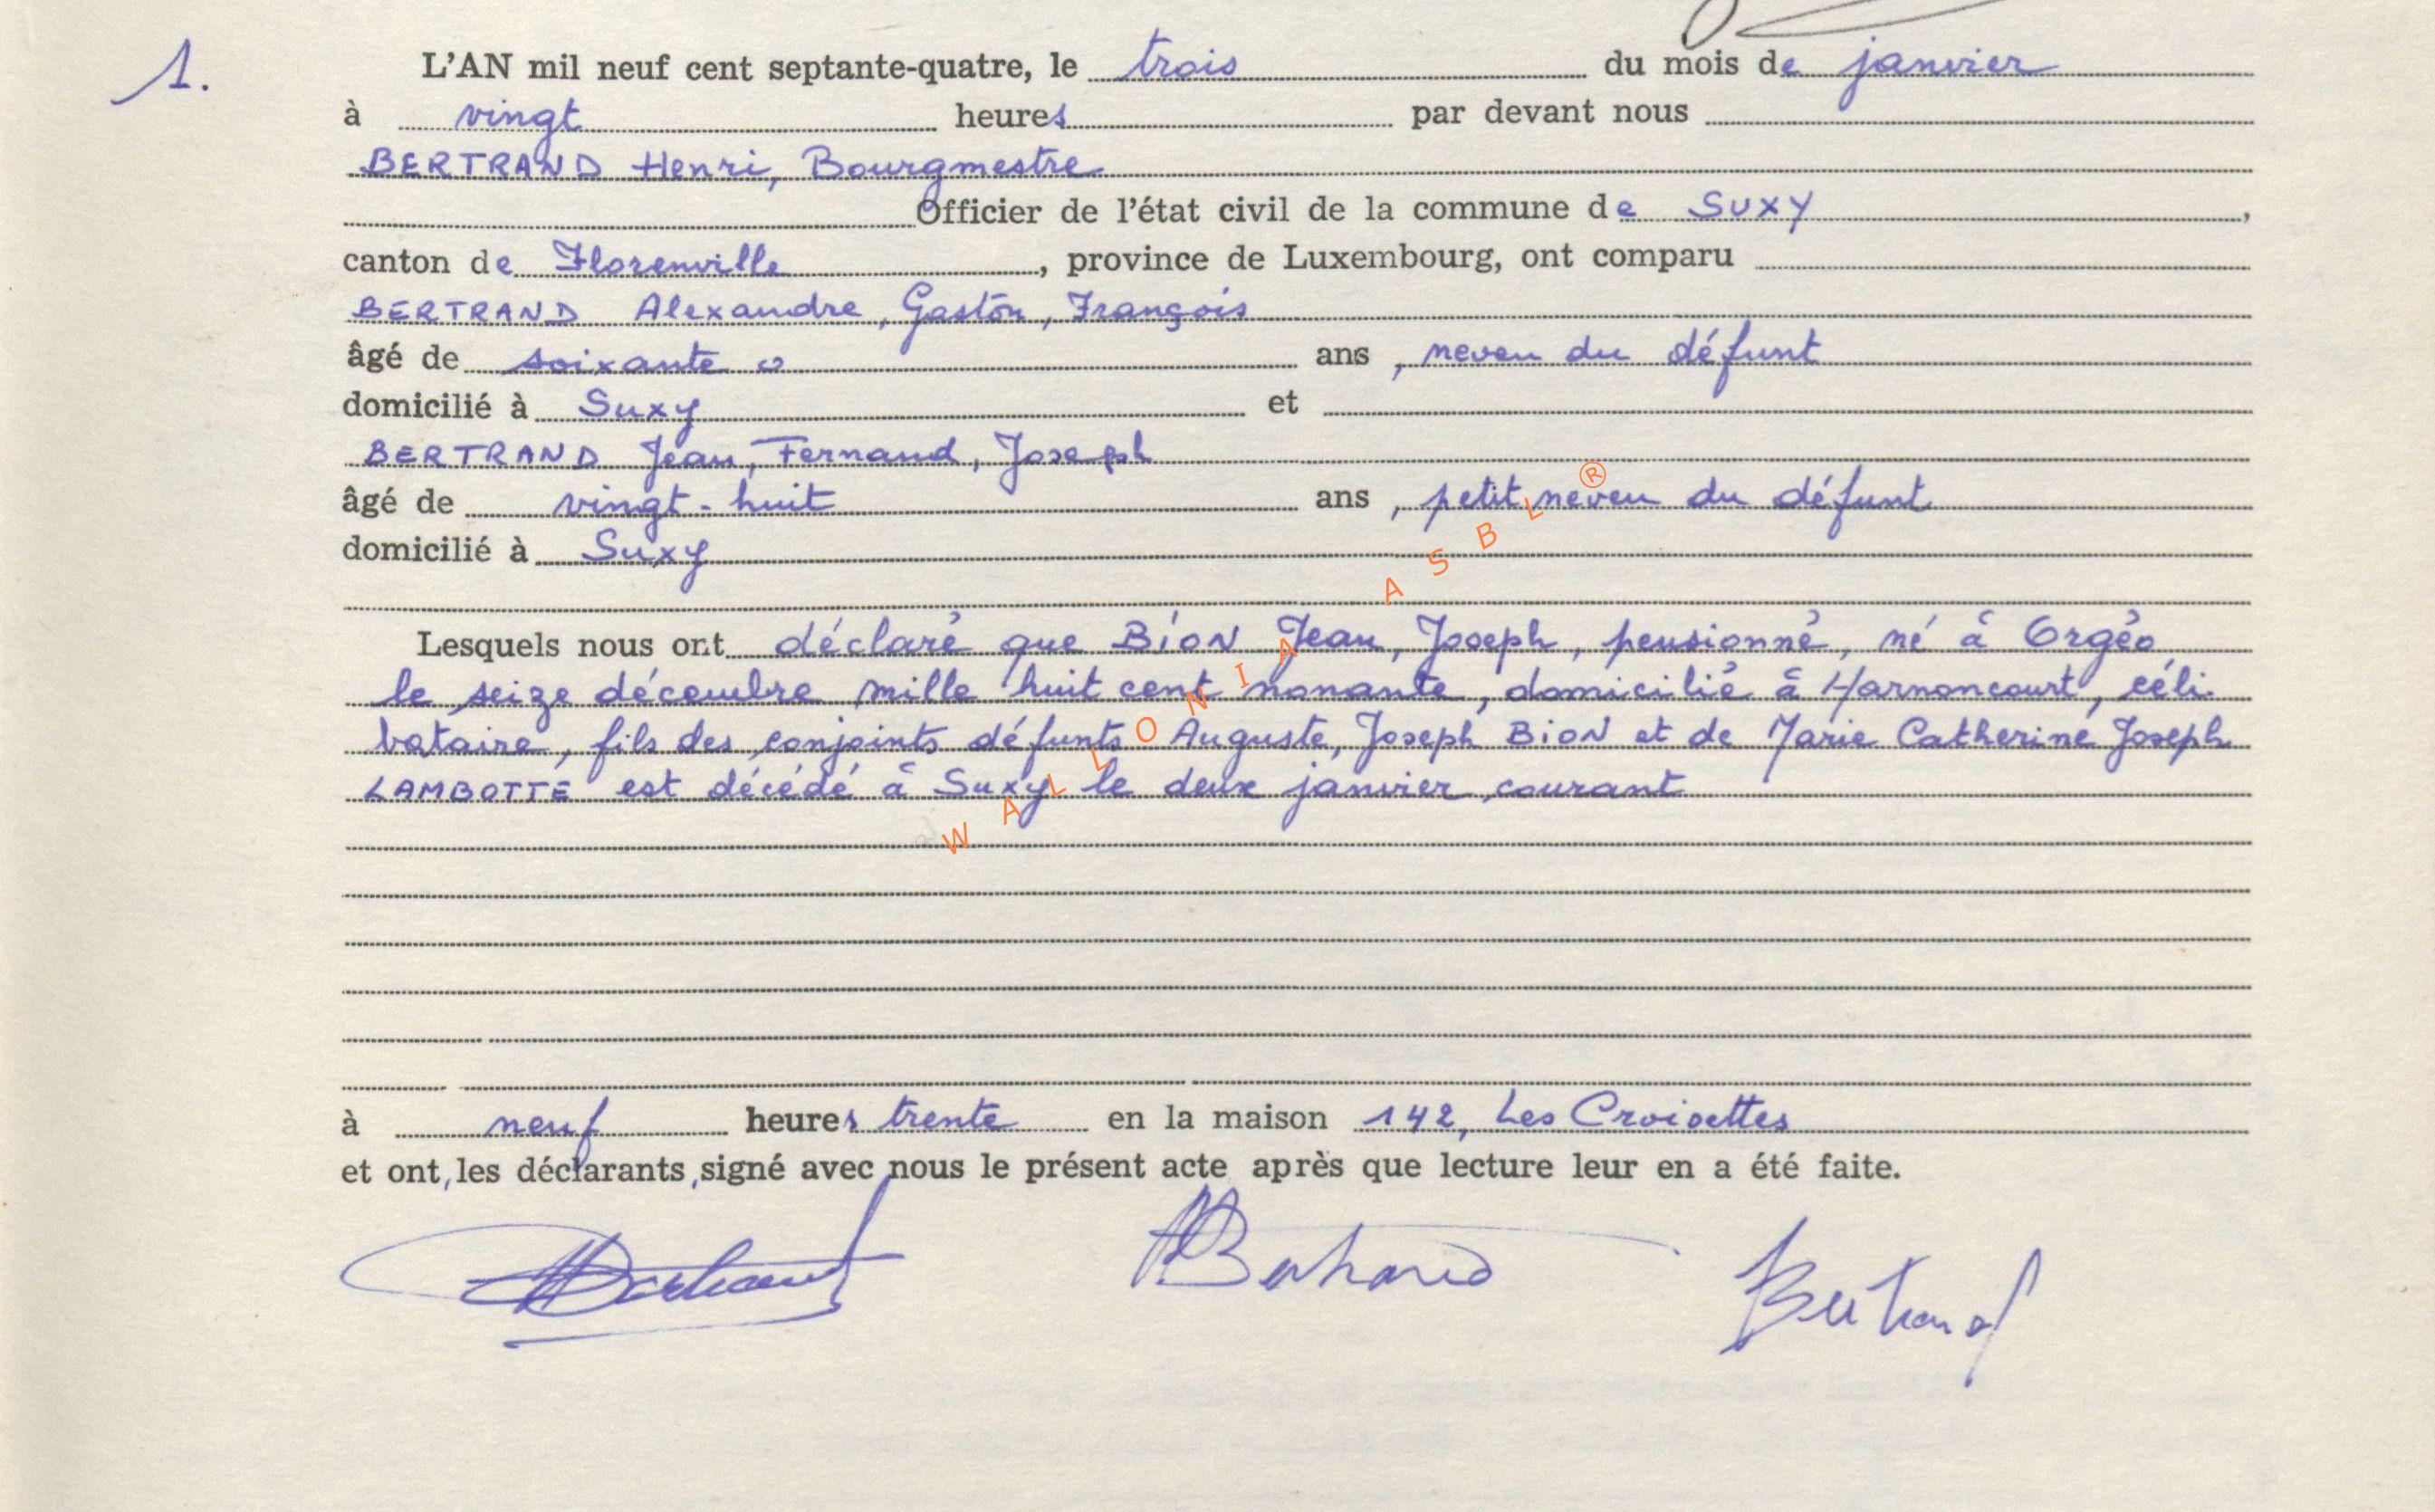 1.
L'AN mil neuf cent septante-quatre, le trois du mois de janvier
à vingt heures par devant nous
BERTRAND Henri, Bourgmestre
Officier de l'état civil de la commune de SUXY,
canton de Florenville, province de Luxembourg, ont comparu
BERTRAND Alexandre, Gaston, François
âgé de soixante ans, neveu du défunt
domicilié à Suxy et
BERTRAND Jean, Fernand, Joseph
âgé de vingt-huit ans, petit neveu du défunt
domicilié à Suxy
Lesquels nous ont déclaré que BION Jean, Joseph, pensionné, né à Orgéo
le seize décembre mille huit cent nonante, domicilié à Harnoncourt, céli-
bataire, fils des conjoints défunts Auguste, Joseph BION et de Marie Catherine Joseph
LAMBOTTE est décédé à Suxy le deux janvier courant
à neuf heures trente en la maison 142, Les Croisettes
et ont, les déclarants, signé avec nous le présent acte après que lecture leur en a été faite.
HBertrand ABertrand Bertrand
WALLONIA ASBL ®